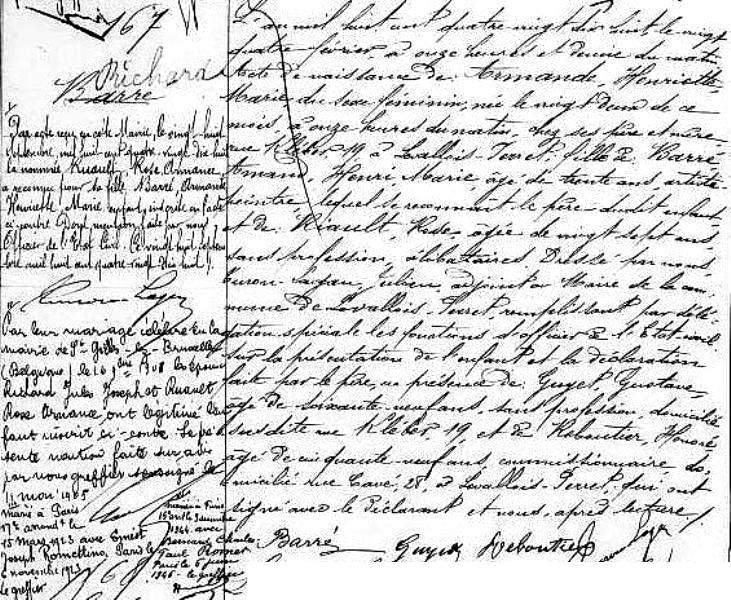 167
Richard
Barré
Par acte reçu en cette Mairie le vingt-huit
Septembre, mil huit cent quatre-vingt dix huit
la nommée Ruault, Rose, Armance,
a reconnu pour sa fille Barré, Armande
Henriette Marie, enfant, inscrite en l'acte
ci-contre. Dont mention faite par nous
Officier de l'Etat Civil. Ce vingt huit Septem-
bre mil huit cent quatre-vingt dix huit.
Par leur mariage célébré en la
mairie de St Gilles-lez-Bruxelles
(Belgique) le 16 1908 les époux
Richard Jules Joseph et Ruault
Rose Armance ont légitimé l'en-
fant inscrit ci-contre. La pré-
sente mention faite sur avis
par nous greffier soussigné le
11 mai 1905
Marié à Paris
17e arrondt le
15 Mars 1923 avec Ernest
Joseph Romettino, Paris le
6 novembre 1923
Le greffier
Mariée à Paris
15e le 16 Decembre
1944 avec
Fernand Charles
Paul Romer
Paris le 6 Juin
1946 - le greffier
L'an mil huit cent quatre-vingt dix huit le vingt
quatre février, à onze heures et demie du matin
Acte de naissance de: Armande, Henriette,
Marie, du sexe féminin, née le vingt deux de ce
mois, à onze heures du matin, chez ses père et mère
rue Kléber, 19 à Levallois-Perret; fille de Barré
Armand, Henri, Marie, âgé de trente ans, artiste
peintre, lequel se reconnait le père dudit enfant
et de: Riault, Rose, âgée de vingt sept ans,
sans profession, célibataires. Dressé par nous
Julien, adjoint au Maire de la com-
mune de Levallois-Perret, remplissant par délé-
gation spéciale les fonctions d'officier de l'Etat-civil
sur la présentation de l'enfant et la déclaration
faite par le père, en présence de: Guyet, Gustave,
âgé de soixante-neuf ans, sans profession, domicilié
susdite rue Kléber, 19, et de Reboutier, Honoré
âgé de cinquante-neuf ans, commissionnaire, do-
micilié rue Cavé, 28, à Levallois-Perret; qui ont
signé avec le Déclarant et nous, après lecture.
Barré Guyet Reboutier